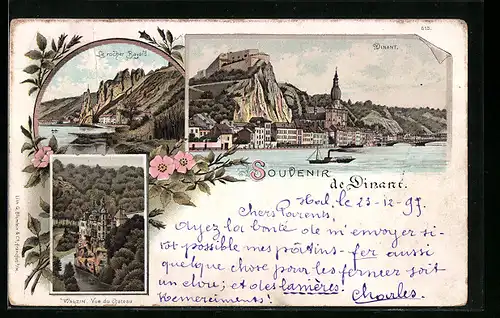 813.
Le rocher Bayard.
DINANT.
SOUVENIR
de Dinant.
WALZIN. Vue du Château
Hal, le 23-12-97
Chers Parents,
Ayez la bonté de m'envoyer si-
tôt-possible mes patins - fer aussi
quelque chose pour les fermer soit
un clou; et des lanières!
Remerciments! Charles.